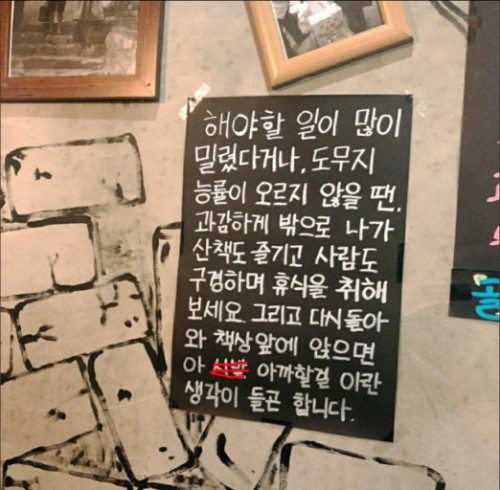 해야할 일이 많이
밀렸다거나, 도무지
능률이 오르지 않을 땐,
과감하게 밖으로 나가
산책도 즐기고 사람도
구경하며 휴식을 취해
보세요. 그리고 다시 돌아
와 책상 앞에 앉으면
아 아까할걸 이란
생각이 들곤 합니다.